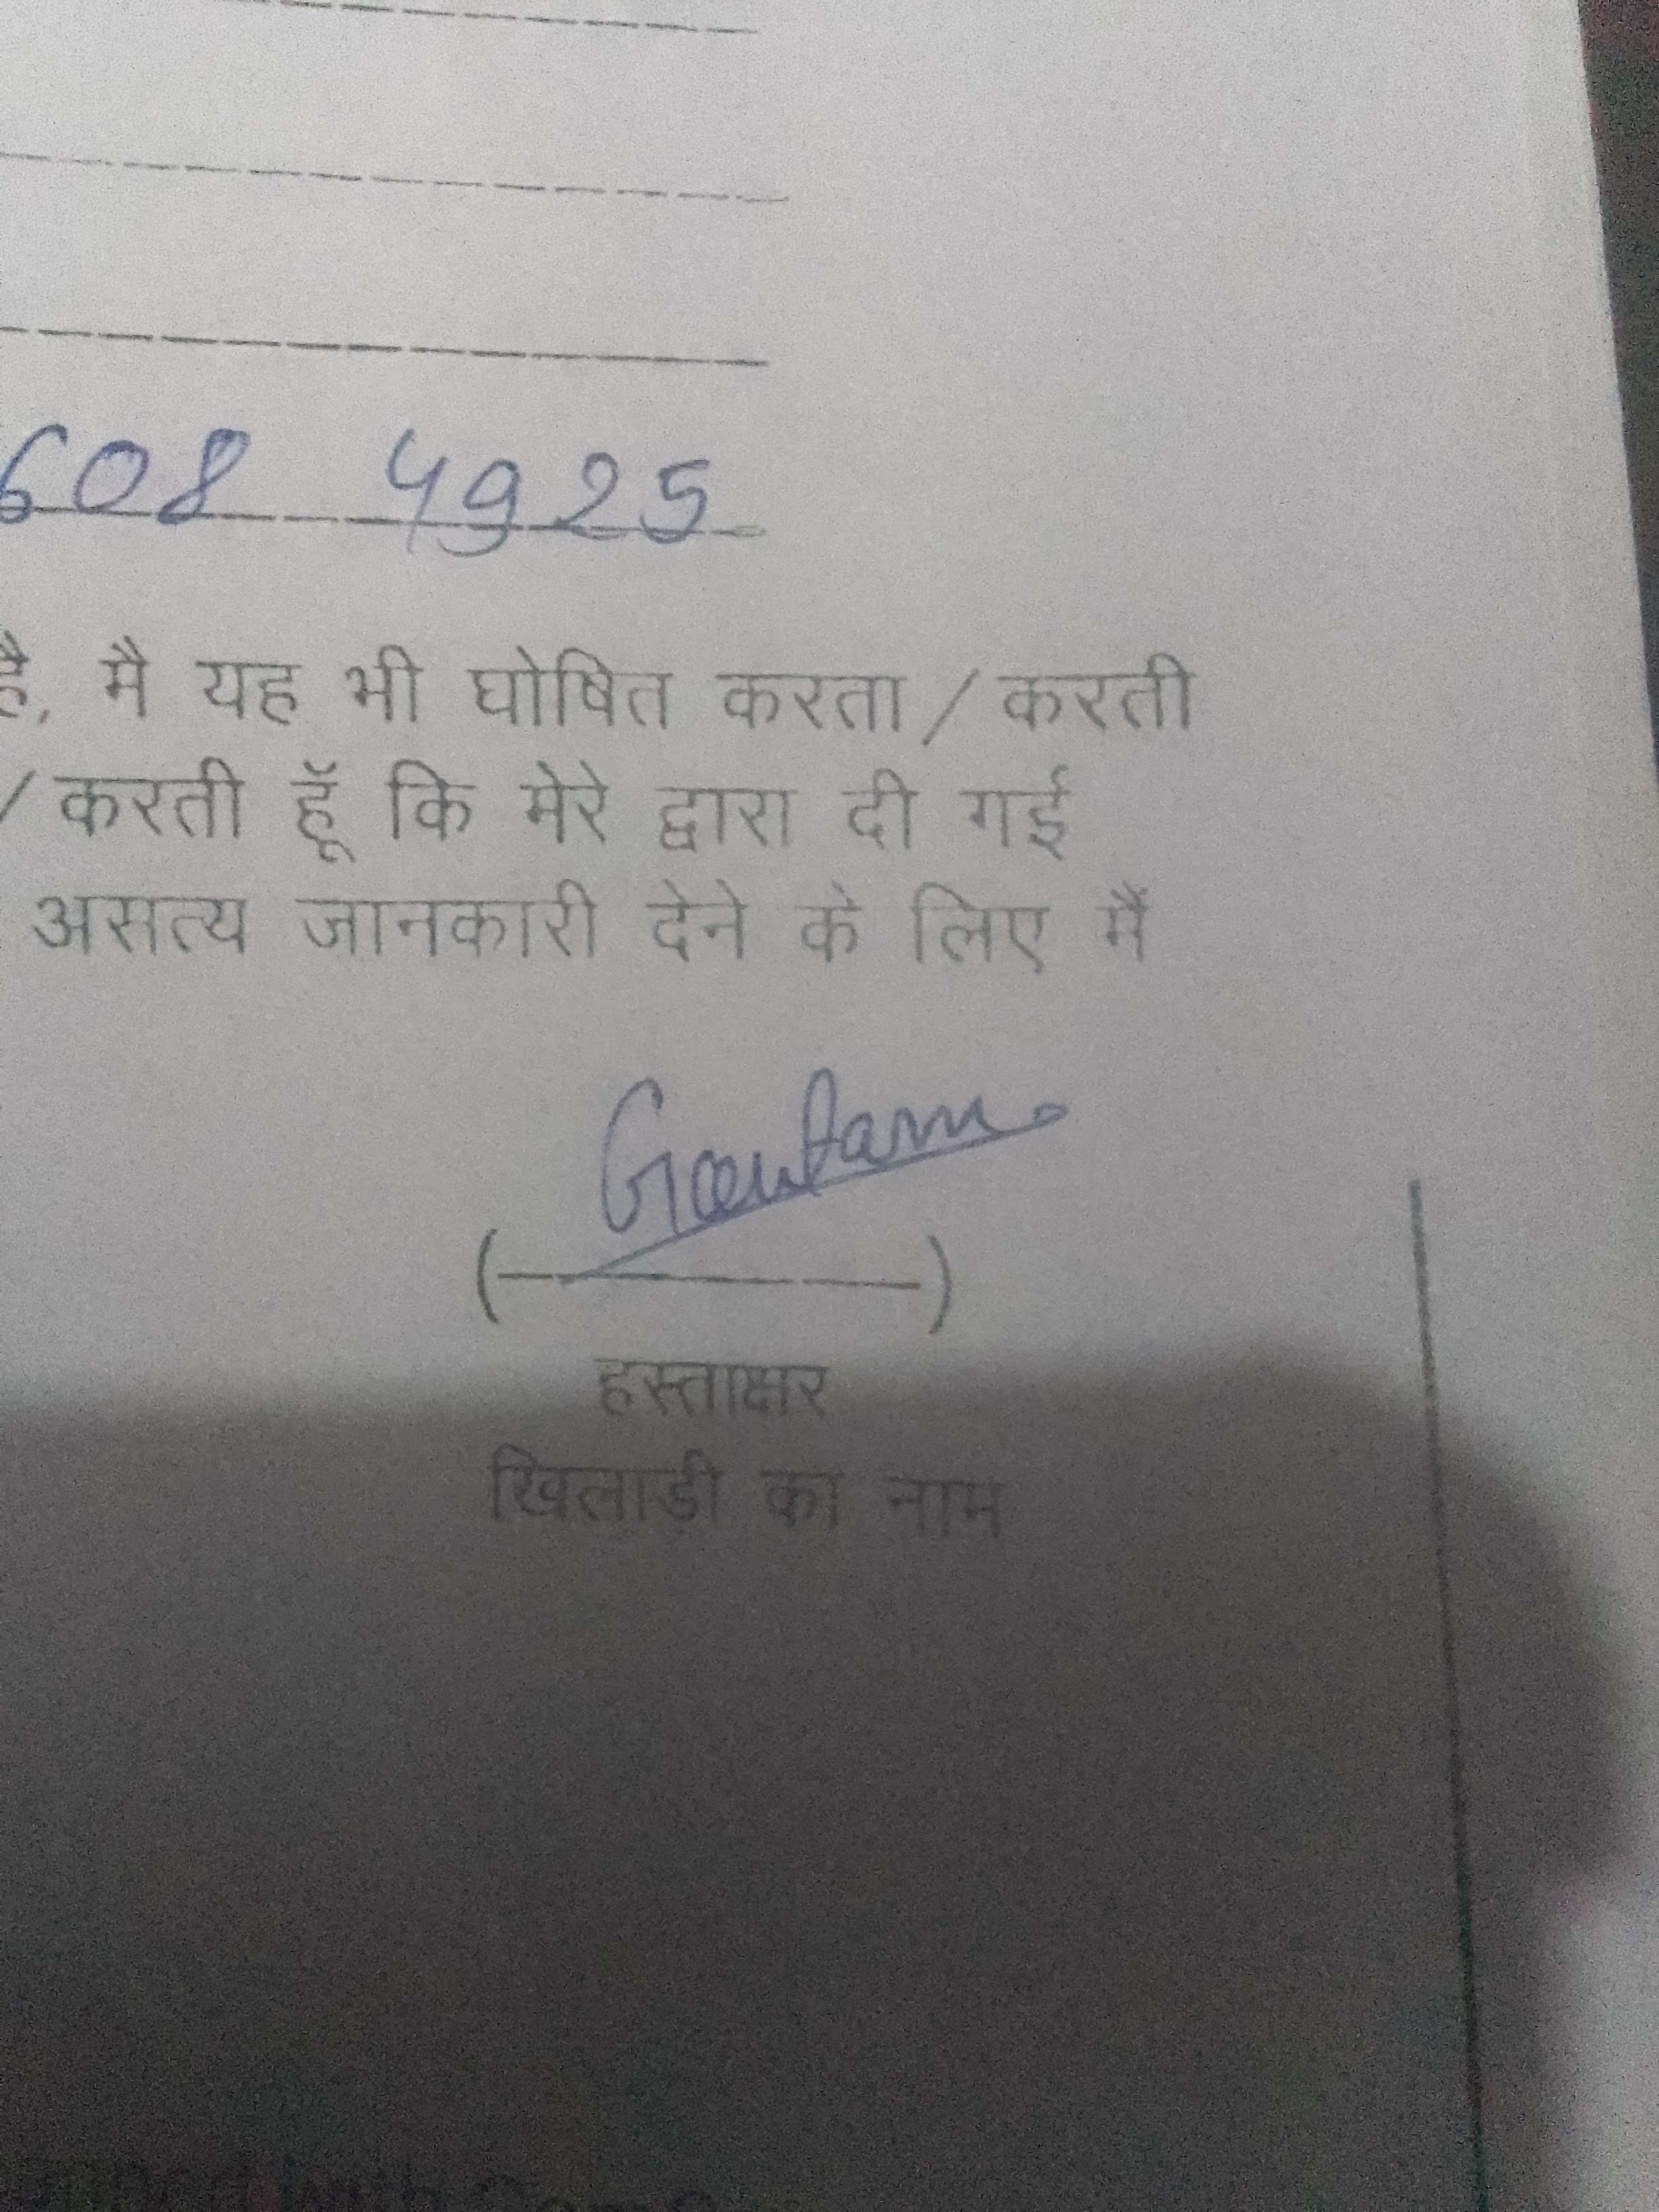 608 4925
है, मै यह भी घोषित करता / करती
/ करती हॅू कि मेरे द्वारा दी गई
असत्य जानकारी देने के लिए मैं
Gautam
(———)
हस्ताक्षर
खिलाडी का नाम